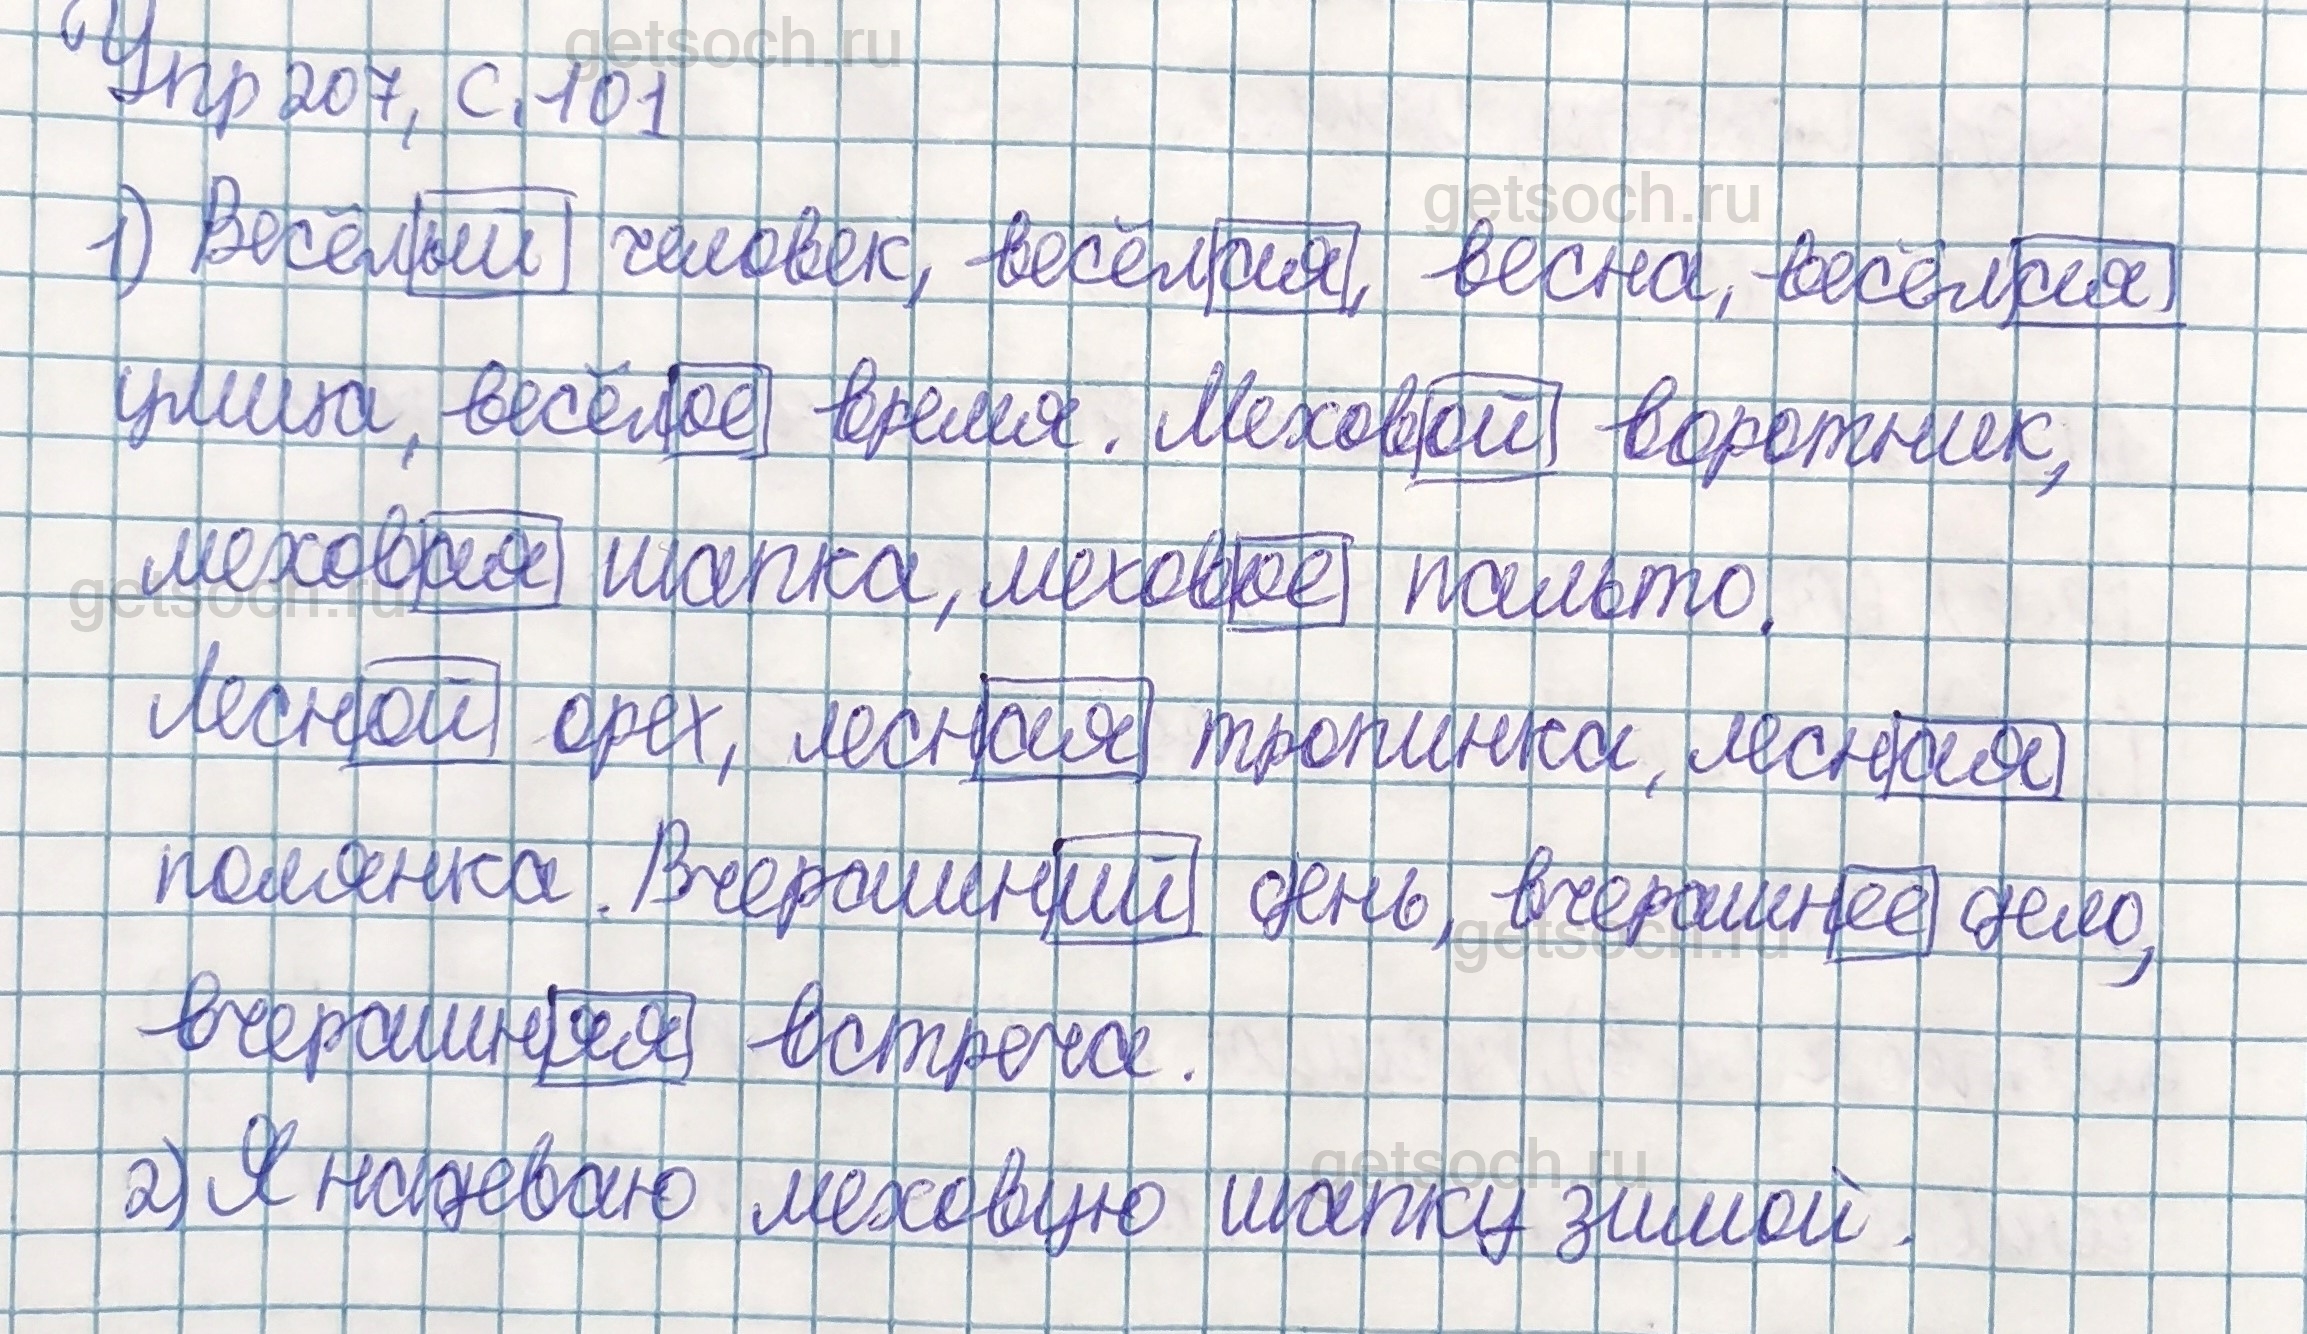 Упр 207, с. 101
getsoch.ru
getsoch.ru
1) Весёлый человек, весёлая, весна, весёлая
улица, весёлое время. Меховой воротник,
меховая шапка, меховое пальто.
getsoch.ru
Лесной орех, лесная тропинка, лесная
полянка. Вчерашний день, вчерашнее дело,
getsoch.ru
вчерашняя встреча.
getsoch.ru
2) Я надеваю меховую шапку зимой.